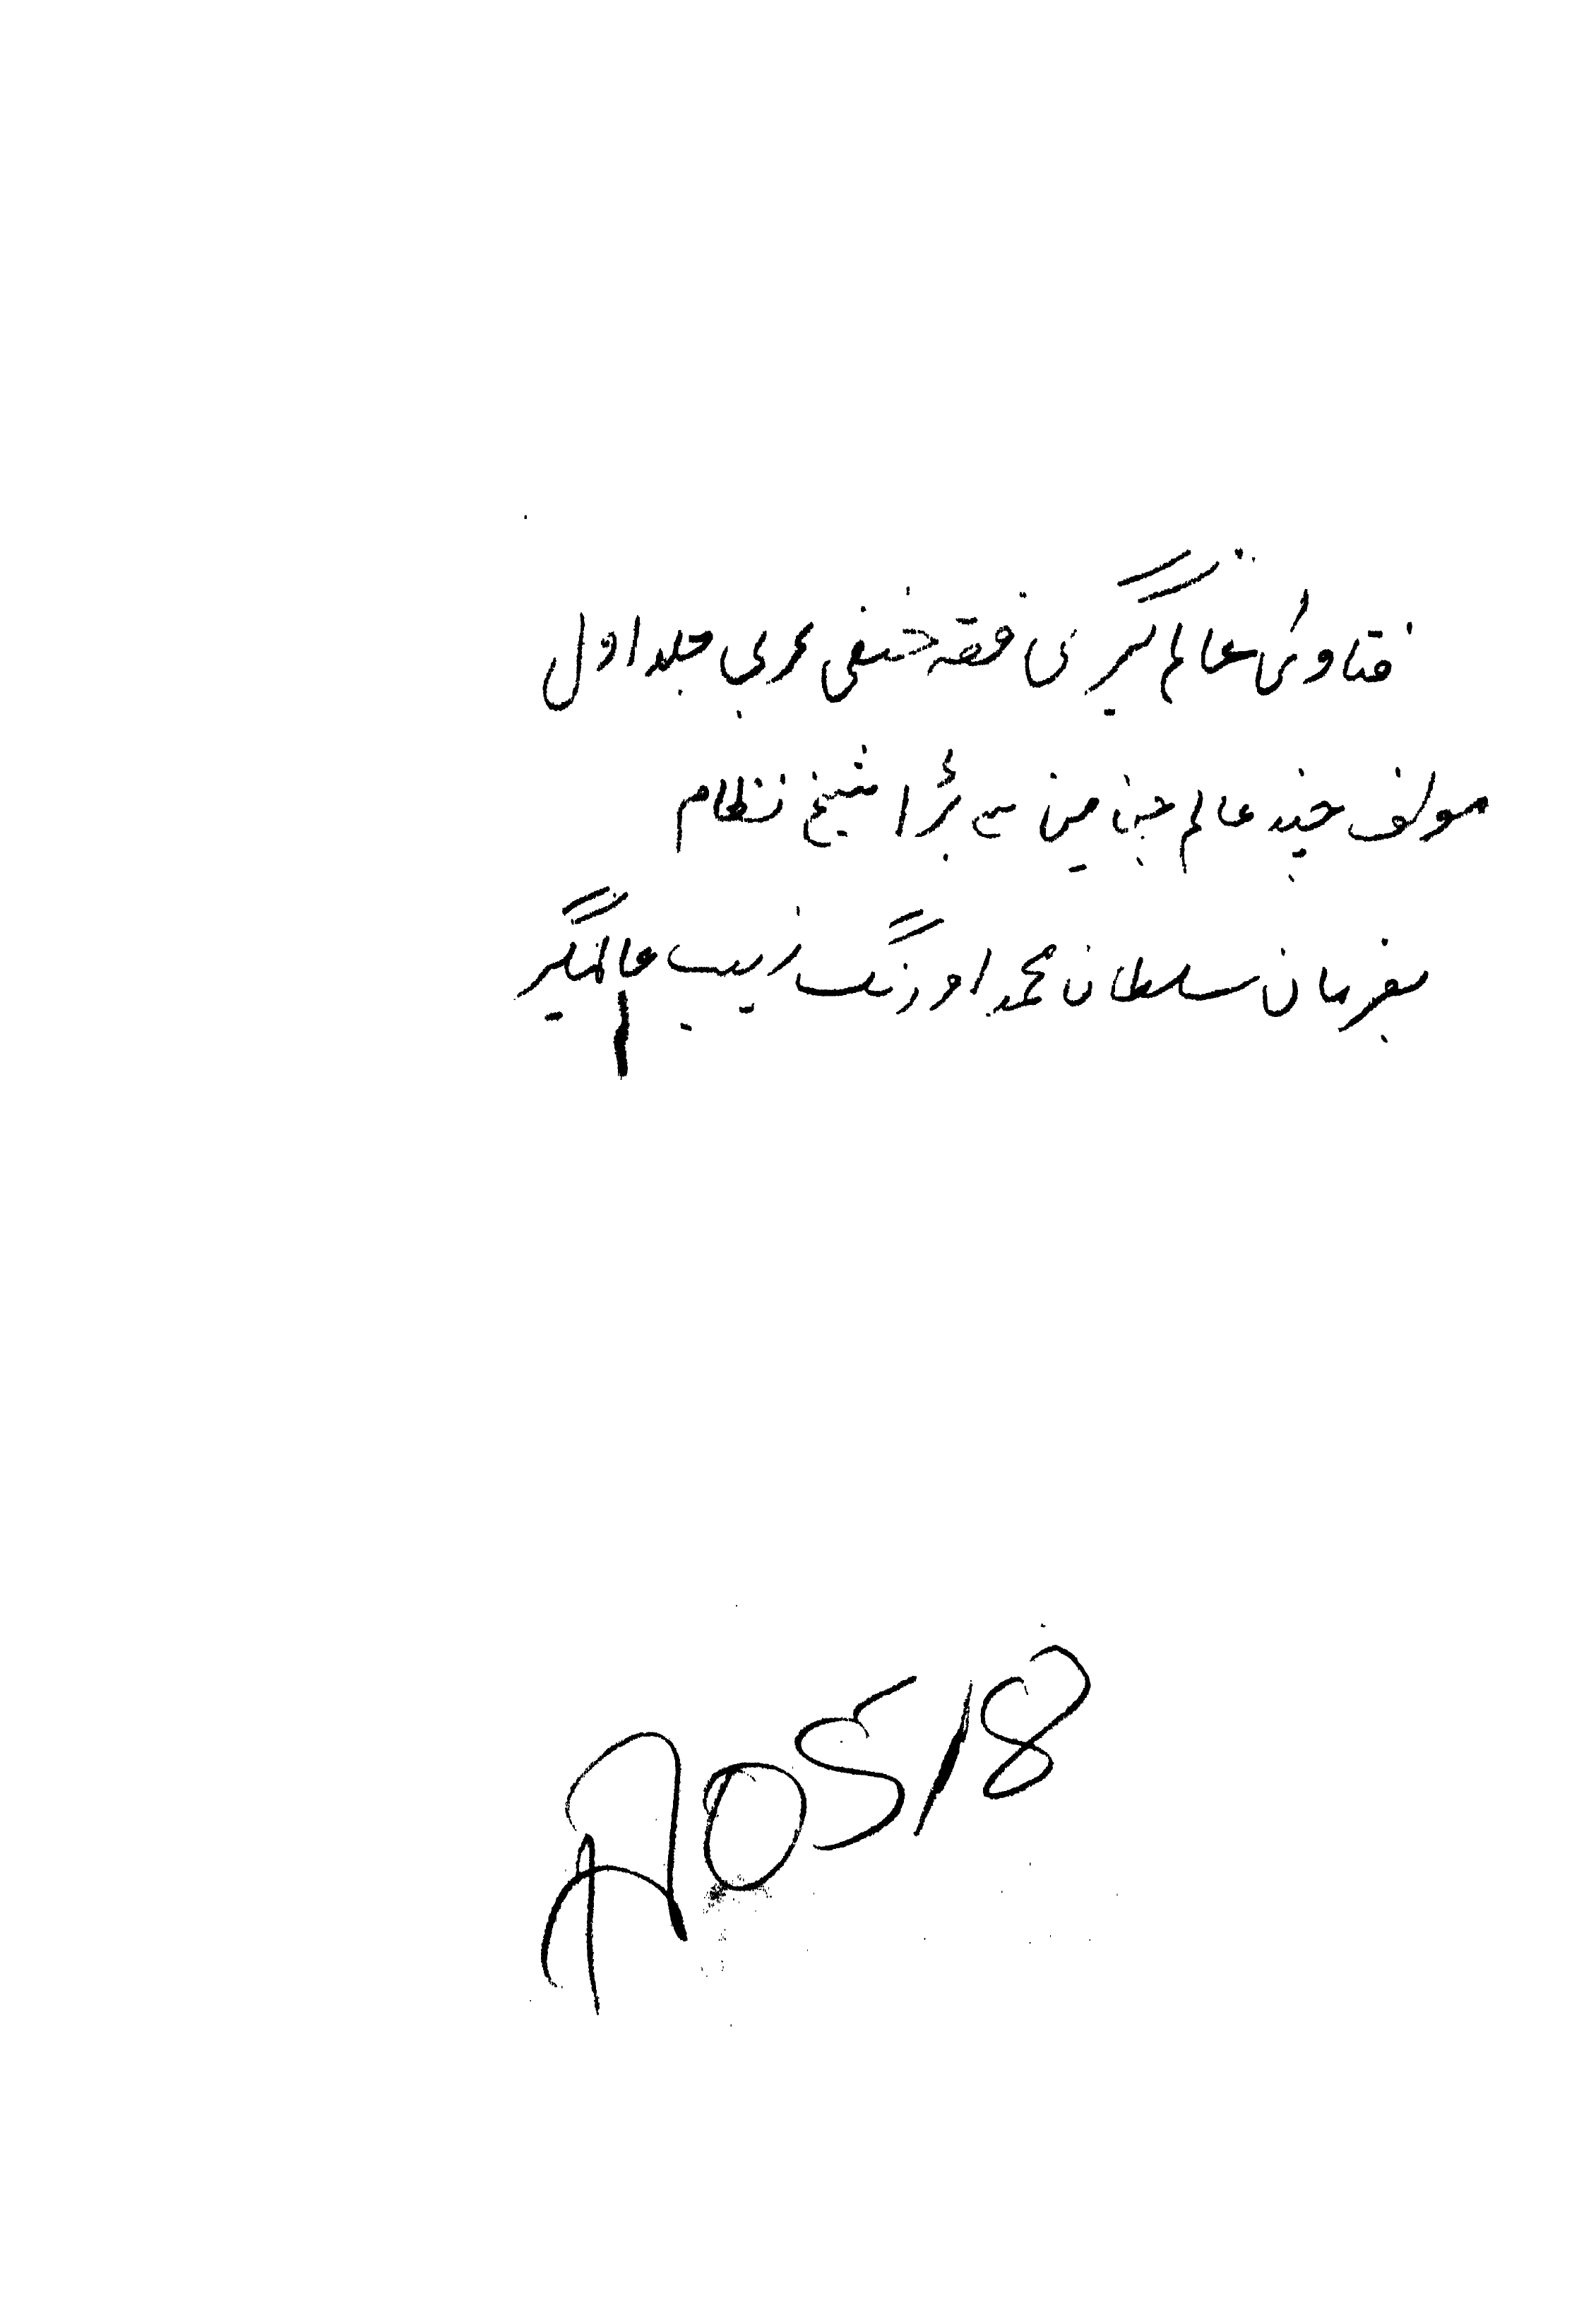 فتاویٰ عالم گیری فقہ حنفی عربی جلد اول
مولف چند عالم جن میں سے بڑا شیخ نظام
بفرمان سلطان محمد اورنگ زیب عالمگیر
A0518